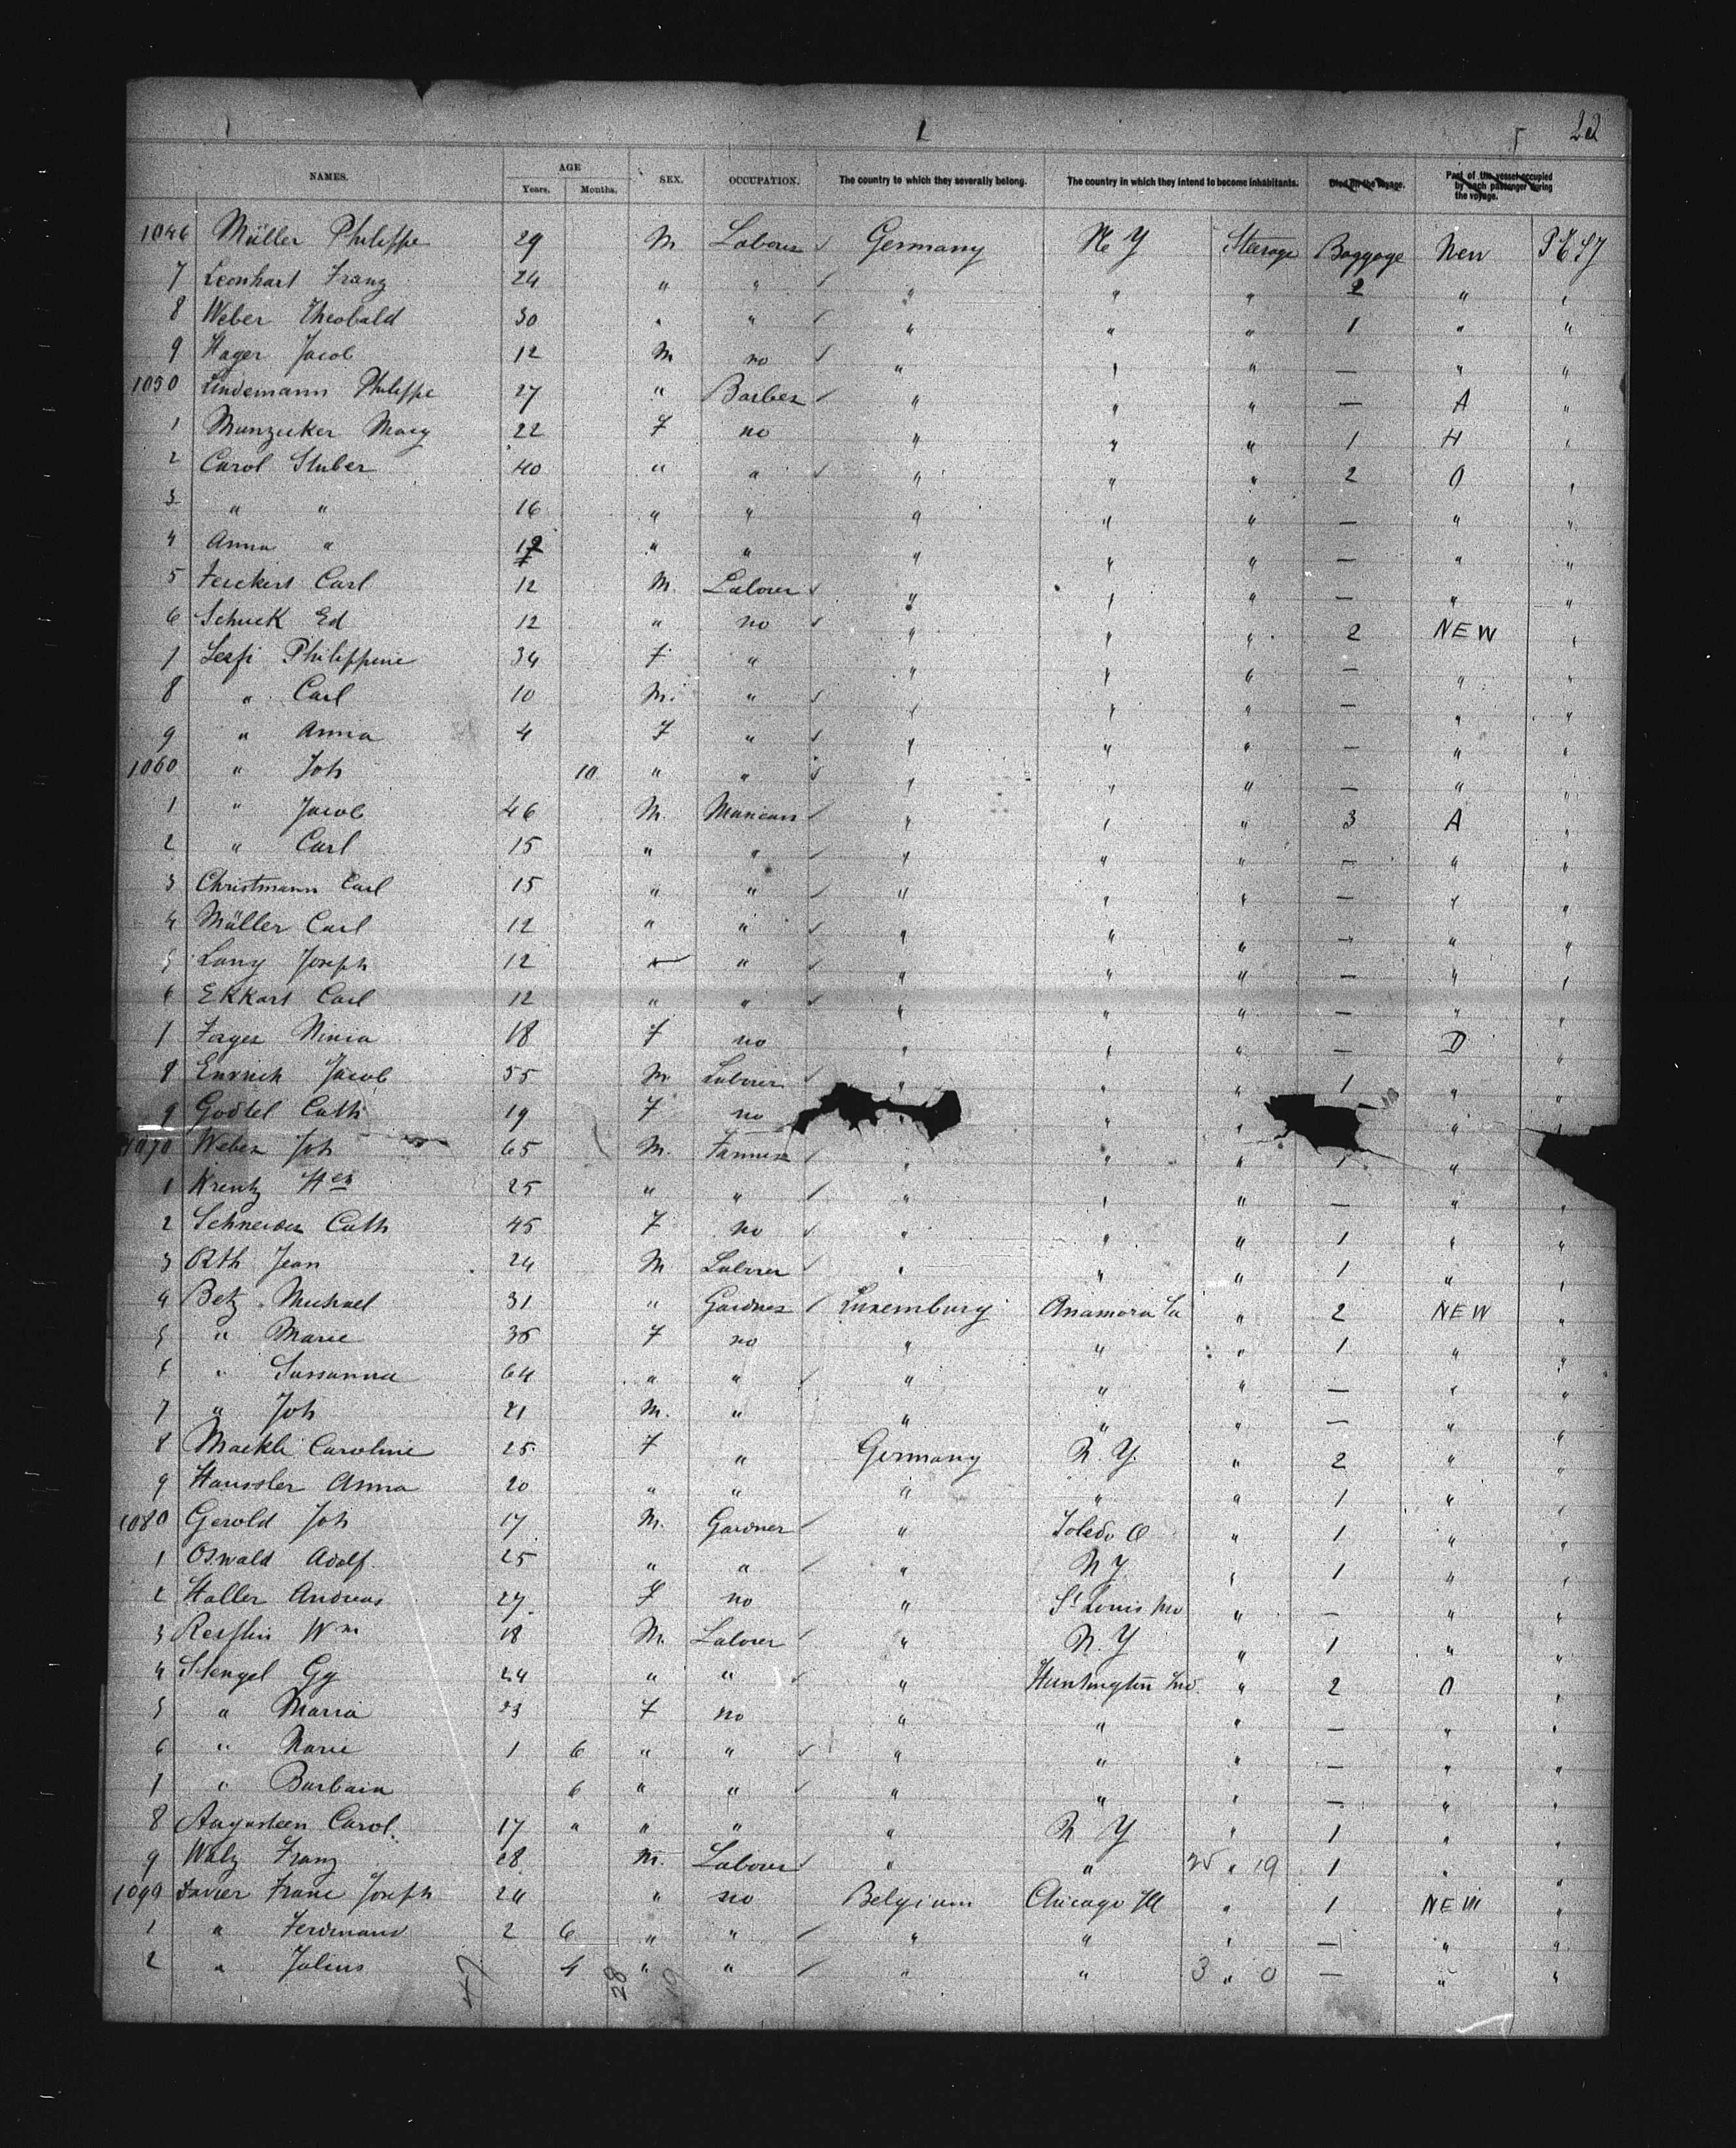 1 1 5 22
NAMES. AGE Years. Months. SEX. OCCUPATION. The country to which they severally belong. The country in which they intend to become inhabitants. Died on the voyage. Part of the vessel occupied by each passenger during the voyage.
1046 Müller Philippe 29 M Laborer ✓ Germany N Y Steerage Baggage New
7 Leonhart Franz 24 " " ✓ " " " 2 " "
8 Weber Theobald 30 " " ✓ " " " 1 " "
9 Hager Jacob 12 M no ✓ " " " — " "
1050 Lindemann Philippe 27 " Barber ✓ " " " — A "
1 Munzucker Mary 22 F no " " " 1 H "
2 Carol Stuber 40 " " ✓ " " " 2 O "
3 " " 16 " " " " " — " "
4 Anna " " " " " " — " "
5 Carl 12 M. Laborer ✓ " " " — " "
6 Schuck Ed 12 " no ✓ " " " 2 NEW "
7 Philippine 34 F " " " " — " "
8 " Carl 10 M. " ✓ " " " — " "
9 " Anna 4 F " ✓ " " " — " "
1060 " Joh 10 " " ✓ " " " — " "
1 " Jacob 46 M. ✓ " " " 3 A "
2 " Carl 15 " " ✓ " " " — " "
3 Christmann Carl 15 " " ✓ " " " — " "
4 Müller Carl 12 " " ✓ " " " — " "
5 Lany Joseph 12 " ✓ " " " — " "
6 Ekkart Carl 12 " " ✓ " " " — " "
7 18 F no " " " — D "
8 Jacob 55 M. Laborer ✓ " " " 1 " "
9 Godtel Cath 19 F no " " "
1070 Weber Joh 65 M. Farmer ✓ " " " 1 "
1 Krentz 25 " " ✓ " " " — " "
2 Schneider Cath 45 F no ✓ " " " 1 " "
3 Rth Jean 24 M Laborer ✓ " " " 1 " "
4 Betz Michael 31 " Gardner ✓ Luxemburg Anamora " 2 NEW "
5 " Marie 36 F no " " " 1 " "
6 " Sussanna 64 " " ✓ " " " — " "
7 " Joh 21 M. " " " " — " "
8 Maekli Caroline 25 F " Germany N. Y. " 2 " "
9 Haussler Anna 20 " " " " " 1 " "
1080 Gerold Joh 17 M. Gardner ✓ " Toledo O " 1 " "
1 Oswald Adolf 25 " " ✓ " N Y " 1 " "
2 Haller Andreas 27 F no " St Louis Mo " — " "
3 Wm 18 M. Laborer ✓ " N. Y " 1 " "
4 Stengel Gg 24 " " ✓ " Huntington Ind. " 2 O "
5 " Maria 23 F no " " " — " "
6 " Marie 1 6 " " ✓ " " " — " "
7 " Barbara 6 " " ✓ " " " — " "
8 Augusteen Carol. 17 " " " " N Y " 1 " "
9 Walz Franz 28 M. Laborer ✓ " " 25 " 19 1 " "
1090 Franc Joseph 24 " no Belgium Chicago Ill " 1 NEW "
1 " Ferdinand 2 6 " " ✓ " " " — " "
2 " Julius 4 " " ✓ " " 3 " 0 — " "
47 28 19